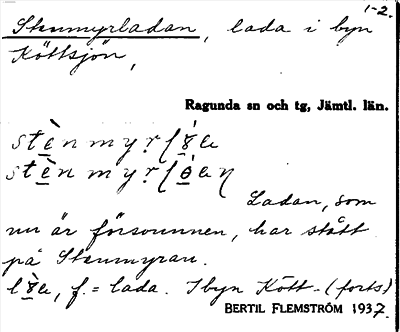 1-2.
Stenmyrladan, lada i byn
Köttsjön,
Ragunda sn och tg, Jämtl. län.
Ladan, som
nu är försvunnen, har stått
på Stenmyran.
f. = lada. I byn Kött- (forts)
BERTIL FLEMSTRÖM 1937.